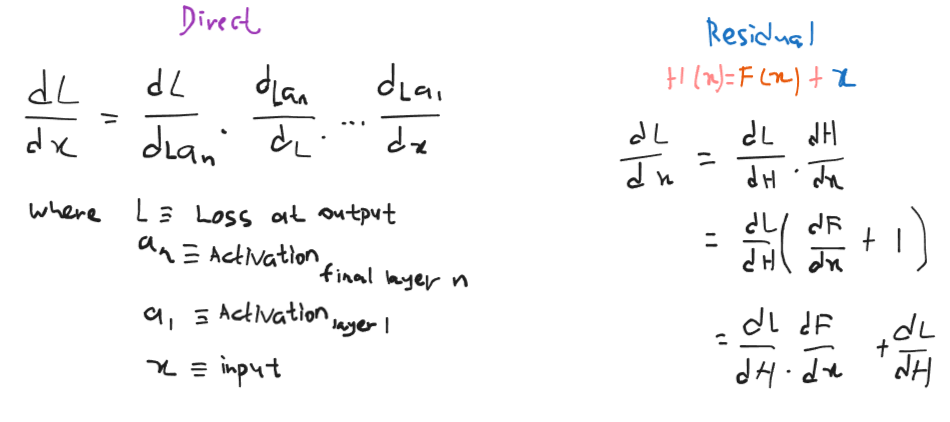 Direct
dL/dx = dL/dLaₙ . dLaₙ/dL . ... dLa₁/dx
where L ≡ Loss at output
aₙ ≡ Activation final layer n
a₁ ≡ Activation layer 1
x ≡ input
Residual
H(x)=F(x)+x
dL/dx = dL/dH . dH/dx
= dL/dH ( dF/dx + 1 )
= dL/dH . dF/dx + dL/dH